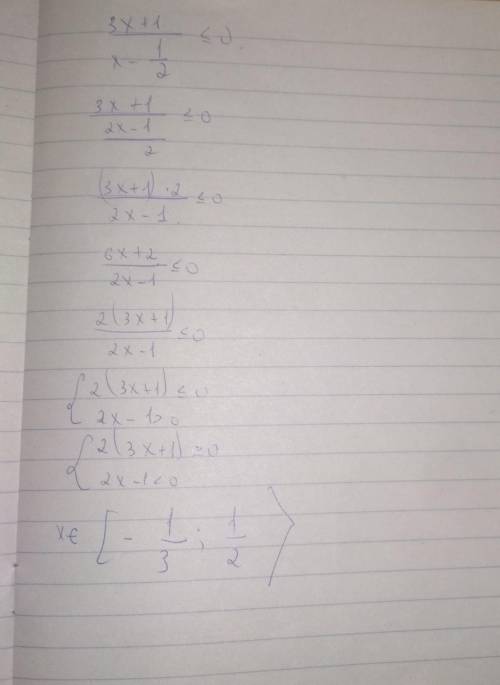 (3x+1)/(x - 1/2) ≤ 0
(3x+1)/((2x-1)/2) ≤ 0
((3x+1)·2)/(2x-1) ≤ 0
(6x+2)/(2x-1) ≤ 0
(2(3x+1))/(2x-1) ≤ 0
{ 2(3x+1) ≤ 0
2x-1 > 0
{ 2(3x+1) ≥ 0
2x-1 < 0
x ∈ [-1/3; 1/2⟩